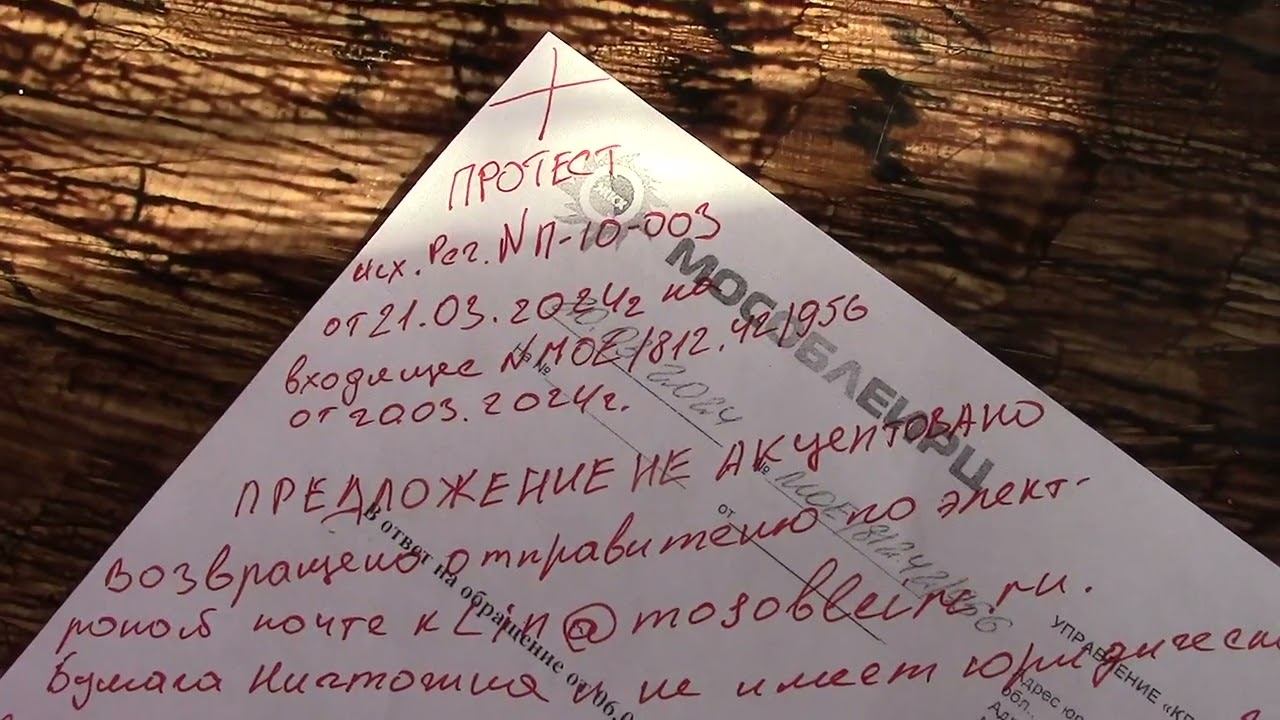 ПРОТЕСТ
исх. Рег. N П-10-003
от 21.03.2024г на
входящее N МОЕ/812.42/956
от 2003.2024г.
ПРЕДЛОЖЕНИЕ НЕ АКЦЕПТОВАНО
Возвращено отправителю по элект-
роной почте
Бумага Ничтожна и не имеет юридическ
МОСОБЛЕИРЦ
2024
№
№ МОЕ/81242/956
от
В ответ на обращение от 06.0
УПРАВЛЕНИЕ «КР
Адрес юр
обл.